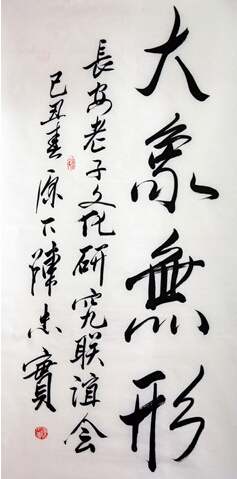 大象無形
長安老子文化研究联谊会
己丑春 原下 陳忠實